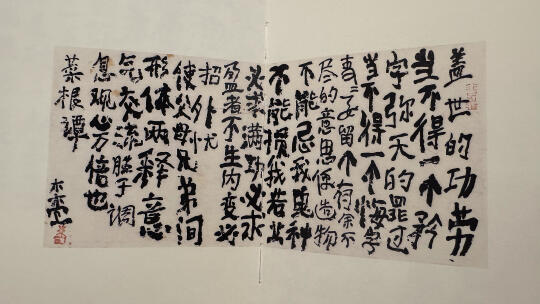 盖世的功劳
当不得一个矜
字弥天的罪过
当不得一个悔字
事事留个有余不
尽的意思便造物
不能忌我鬼神
不能损我若业
必求满功必求
盈者不生内变必
招外忧
使父母兄弟间
形体两释意
气交流胜于调
息观心万倍也
菜根譚